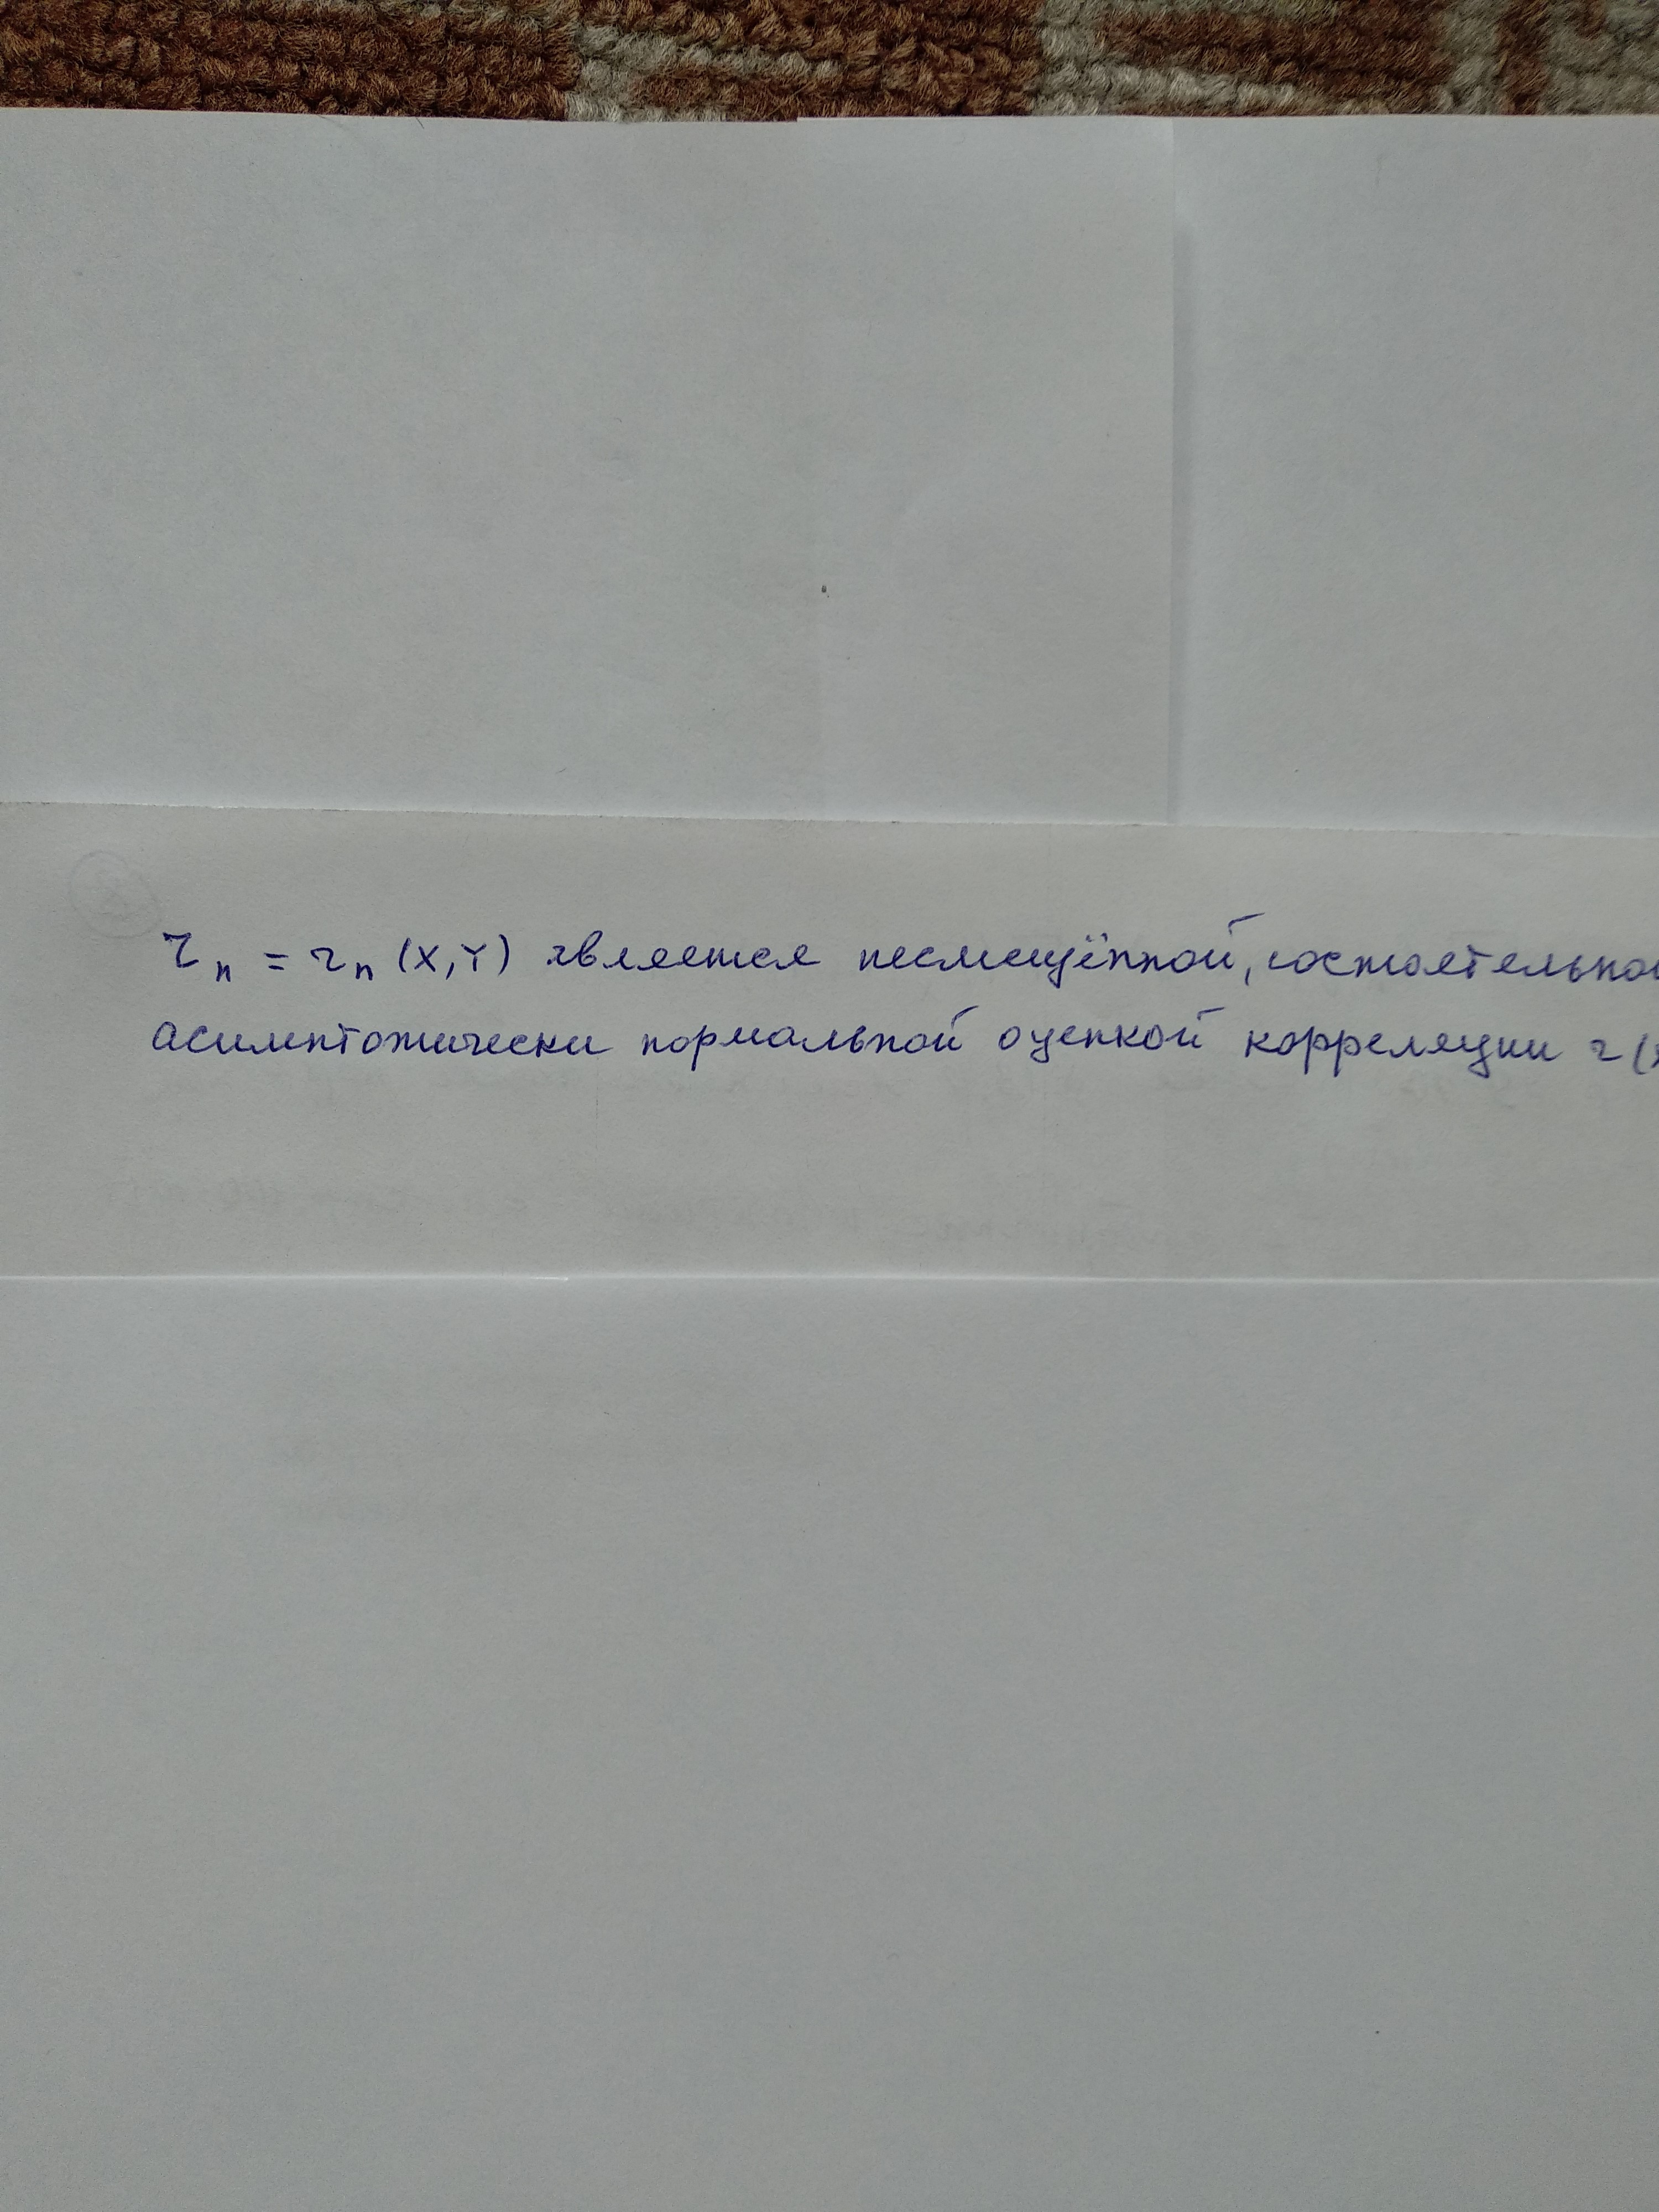 r_n = r_n (X, Y) является несмещённой, состоятельной
асимптотически нормальной оценкой корреляции r(